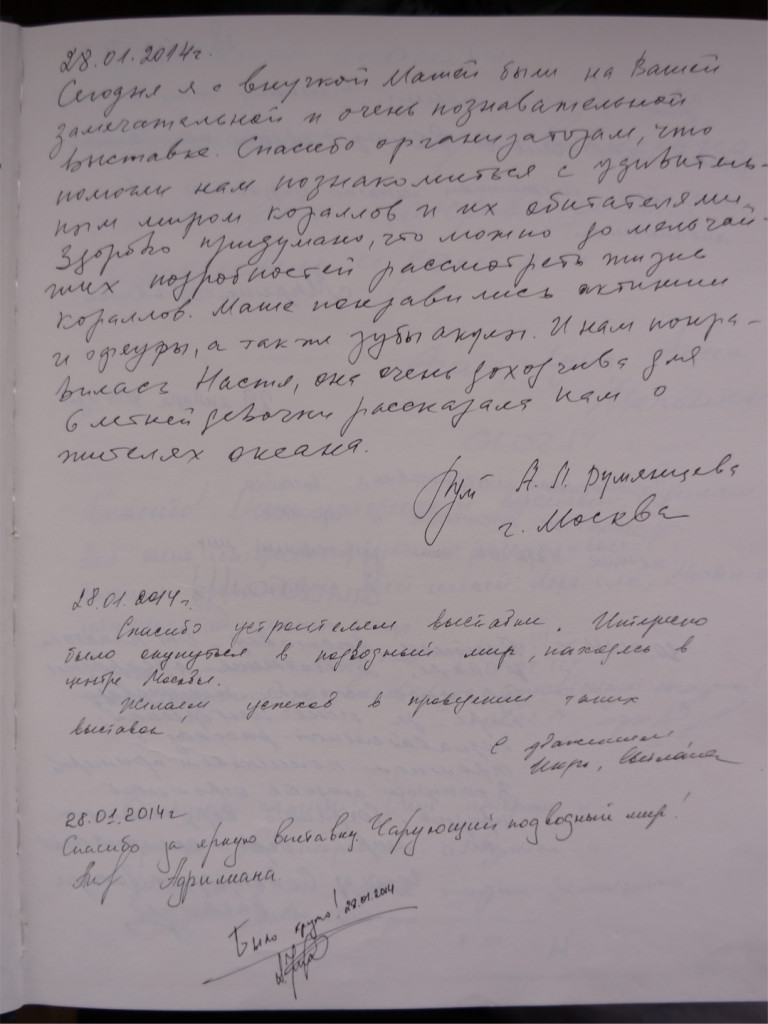 28.01.2014г.
Сегодня я с внучкой Машей были на Вашей
замечательной и очень познавательной
выставке. Спасибо организаторам, что
помогли нам познакомиться с удивитель-
ным миром кораллов и их обитателями.
Здорово придумано, что можно до мельчай-
ших подробностей рассмотреть жизнь
кораллов. Маше понравились актинии
и офиуры, а также зубы акулы. И нам понра-
вилась Настя, она очень доходчива для
6 летней девочки рассказала нам о
жителях океана.
А. Л. Румянцева
г. Москва
28.01.2014г.
Спасибо устроителям выставки. Интересно
было окунуться в подводный мир, находясь в
центре Москвы.
Желаем успехов в проведении таких
выставок!
С уважением
Светлана
28.01.2014г
Спасибо за яркую выставку. Чарующий подводный мир!
Было круто! 28.01.2014